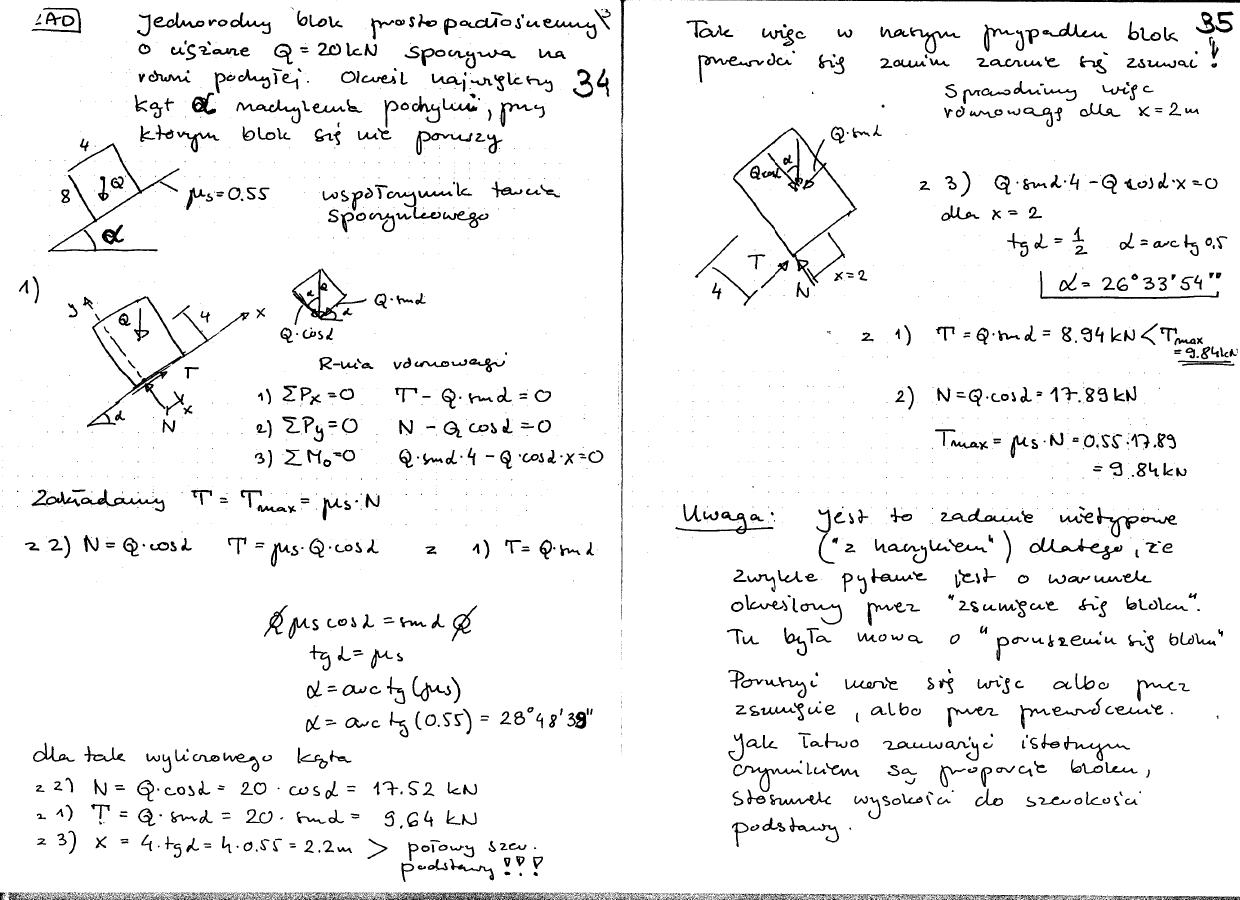 ZAD
Jednorodny blok prostopadłościenny
o ciężarze Q = 20 kN spoczywa na
równi pochyłej. Określ największy
34
kąt α nachylenia pochylni, przy
którym blok się nie poruszy
4
8
Q
α
μs = 0.55
współczynnik tarcia
spoczynkowego
1)
y
Q
4
x
T
α
x
N
α
Q
α
Q·sinα
Q·cosα
R-nia równowagi
1) ΣPx = 0 T - Q·sinα = 0
2) ΣPy = 0 N - Q cosα = 0
3) ΣMo = 0 Q·sinα·4 - Q·cosα·x = 0
Zakładamy T = Tmax = μs·N
z 2) N = Q·cosα T = μs·Q·cosα z 1) T = Q·sinα
Q μs cosα = sinα Q
tgα = μs
α = arctg (μs)
α = arctg (0.55) = 28°48'39"
dla tak wyliczonego kąta
z 2) N = Q·cosα = 20 · cosα = 17.52 kN
z 1) T = Q·sinα = 20 · sinα = 9.64 kN
z 3) x = 4·tgα = 4·0.55 = 2.2m > połowy szer.
podstawy !!!
35
Tak więc w naszym przypadku blok
przewróci się zanim zacznie się zsuwać!
Sprawdzimy więc
równowagę dla x = 2m
Q·sinα
Q cosα
α
T
N
x = 2
4
z 3) Q·sinα·4 - Q cosα·x = 0
dla x = 2
tgα = 1/2 α = arctg 0,5
α = 26°33'54"
z 1) T = Q·sinα = 8.94 kN < Tmax
= 9.84kN
2) N = Q·cosα = 17.89 kN
Tmax = μs·N = 0.55·17.89
= 9.84 kN
Uwaga: Jest to zadanie nietypowe
("z haczykiem") dlatego, że
zwykle pytanie jest o warunek
określony przez "zsunięcie się bloku".
Tu była mowa o "poruszeniu się bloku"
Poruszyć może się więc albo przez
zsunięcie, albo przez przewrócenie.
Jak łatwo zauważyć istotnym
czynnikiem są proporcje bloku,
stosunek wysokości do szerokości
podstawy.